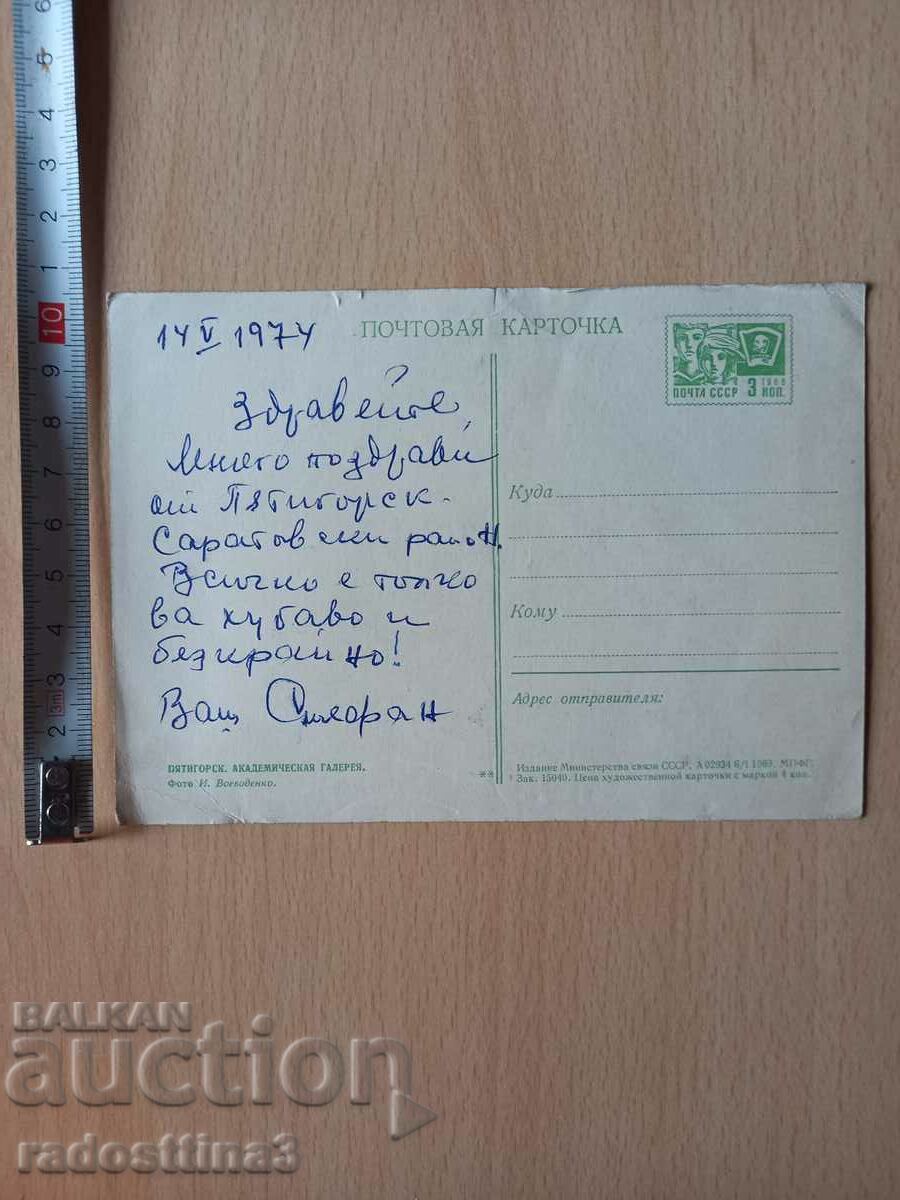 14 V 1974
ПОЧТОВАЯ КАРТОЧКА
1966
ПОЧТА СССР 3 КОП.
Здравейте,
Много поздрави
от Пятигорск -
Саратовски район.
Всичко е толко
ва хубаво и
безкрайно!
Ваш
Куда
Кому
Адрес отправителя:
ПЯТИГОРСК. АКАДЕМИЧЕСКАЯ ГАЛЕРЕЯ.
Фото И. Воеводенко.
**
Издание Министерства связи СССР. А 02934 6/I 1969. МПФГ.
Зак. 15040. Цена художественной карточки с маркой 4 коп.
6
5
4
3
2
1
10
9
8
7
6
5
4
3
3m
2
BALKAN
auction
radosttina3